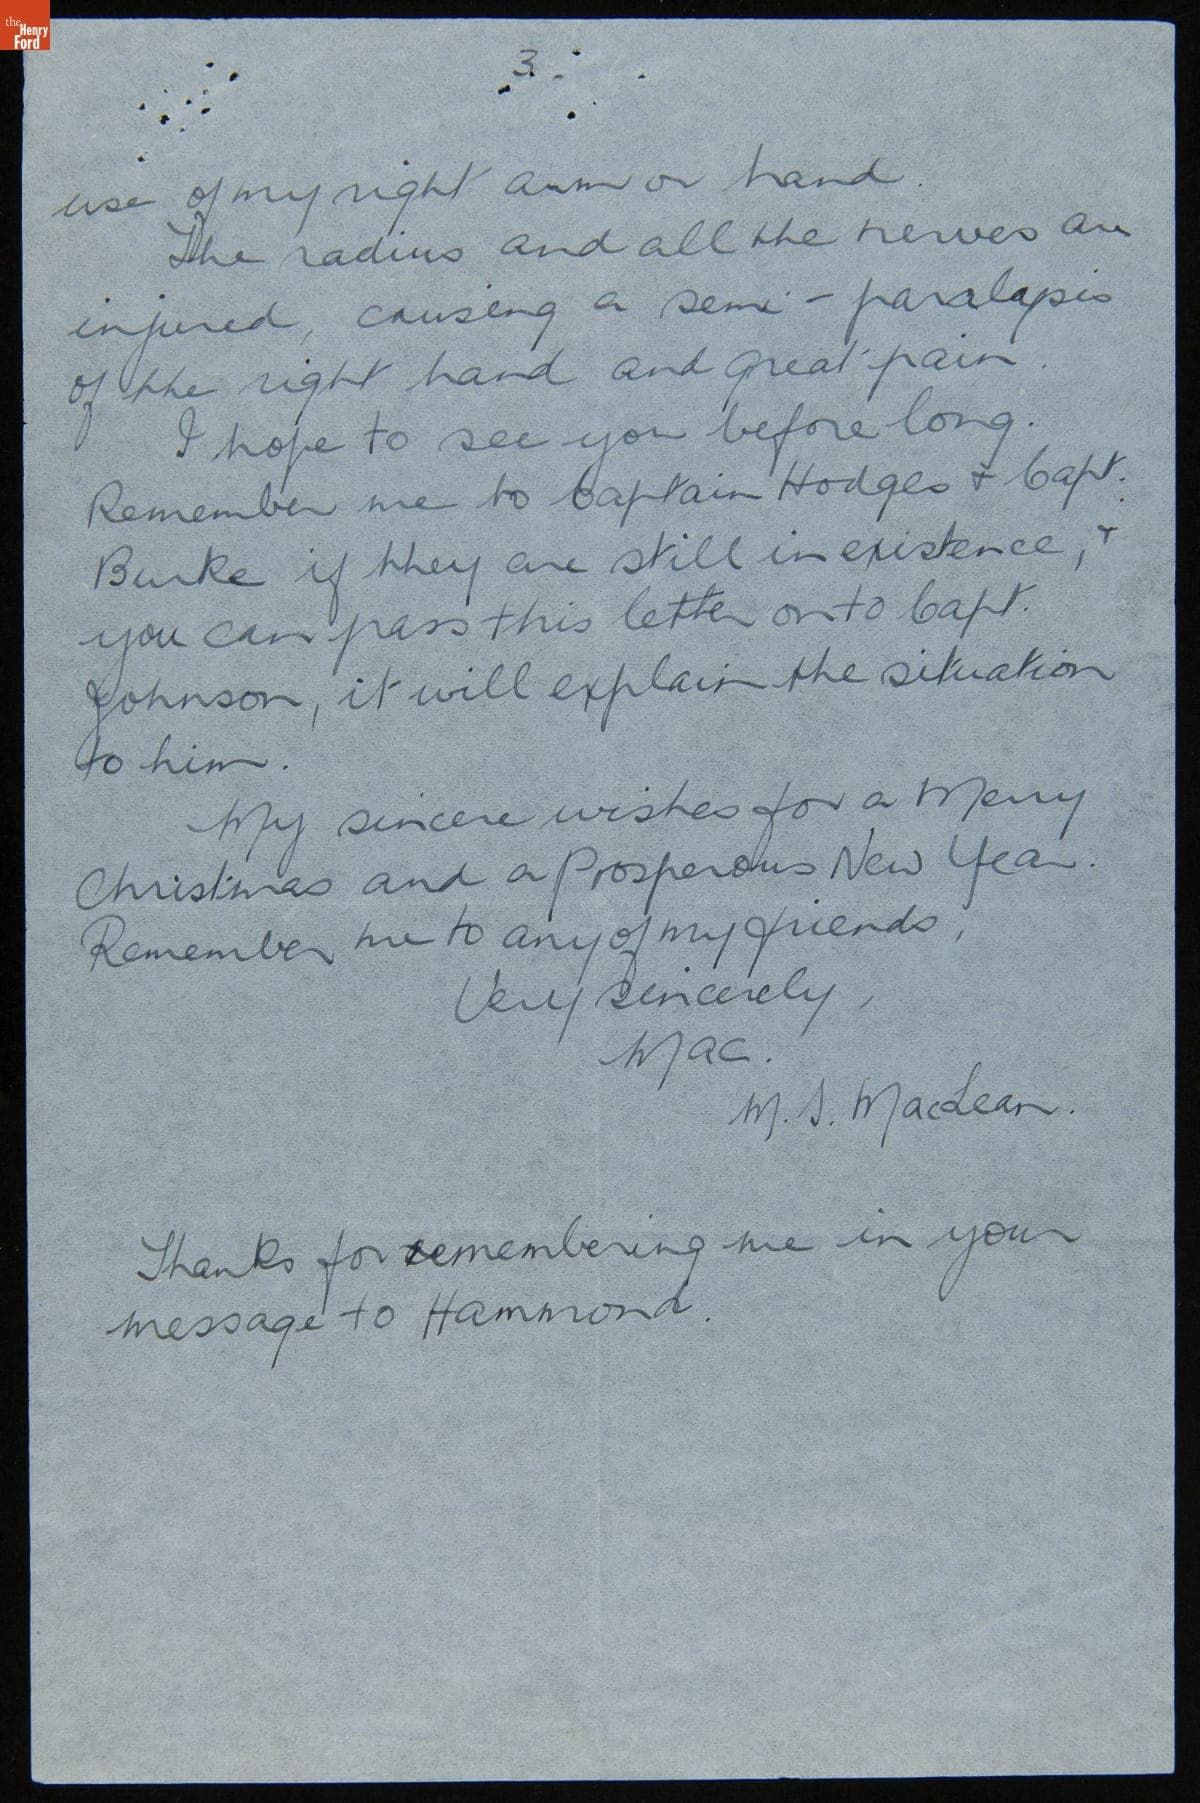 the
Henry
Ford
3.
use of my right arm or hand.
The radius and all the nerves are
injured, causing a semi-paralapsis
of the right hand and great pain.
I hope to see you before long.
Remember me to Captain Hodges + Capt.
Burke if they are still in existence, +
you can pass this letter on to Capt.
Johnson, it will explain the situation
to him.
My sincere wishes for a Merry
Christmas and a Prosperous New Year.
Remember me to any of my friends,
Very sincerely,
Mac.
M. S. MacLean.
Thanks for remembering me in your
message to Hammond.